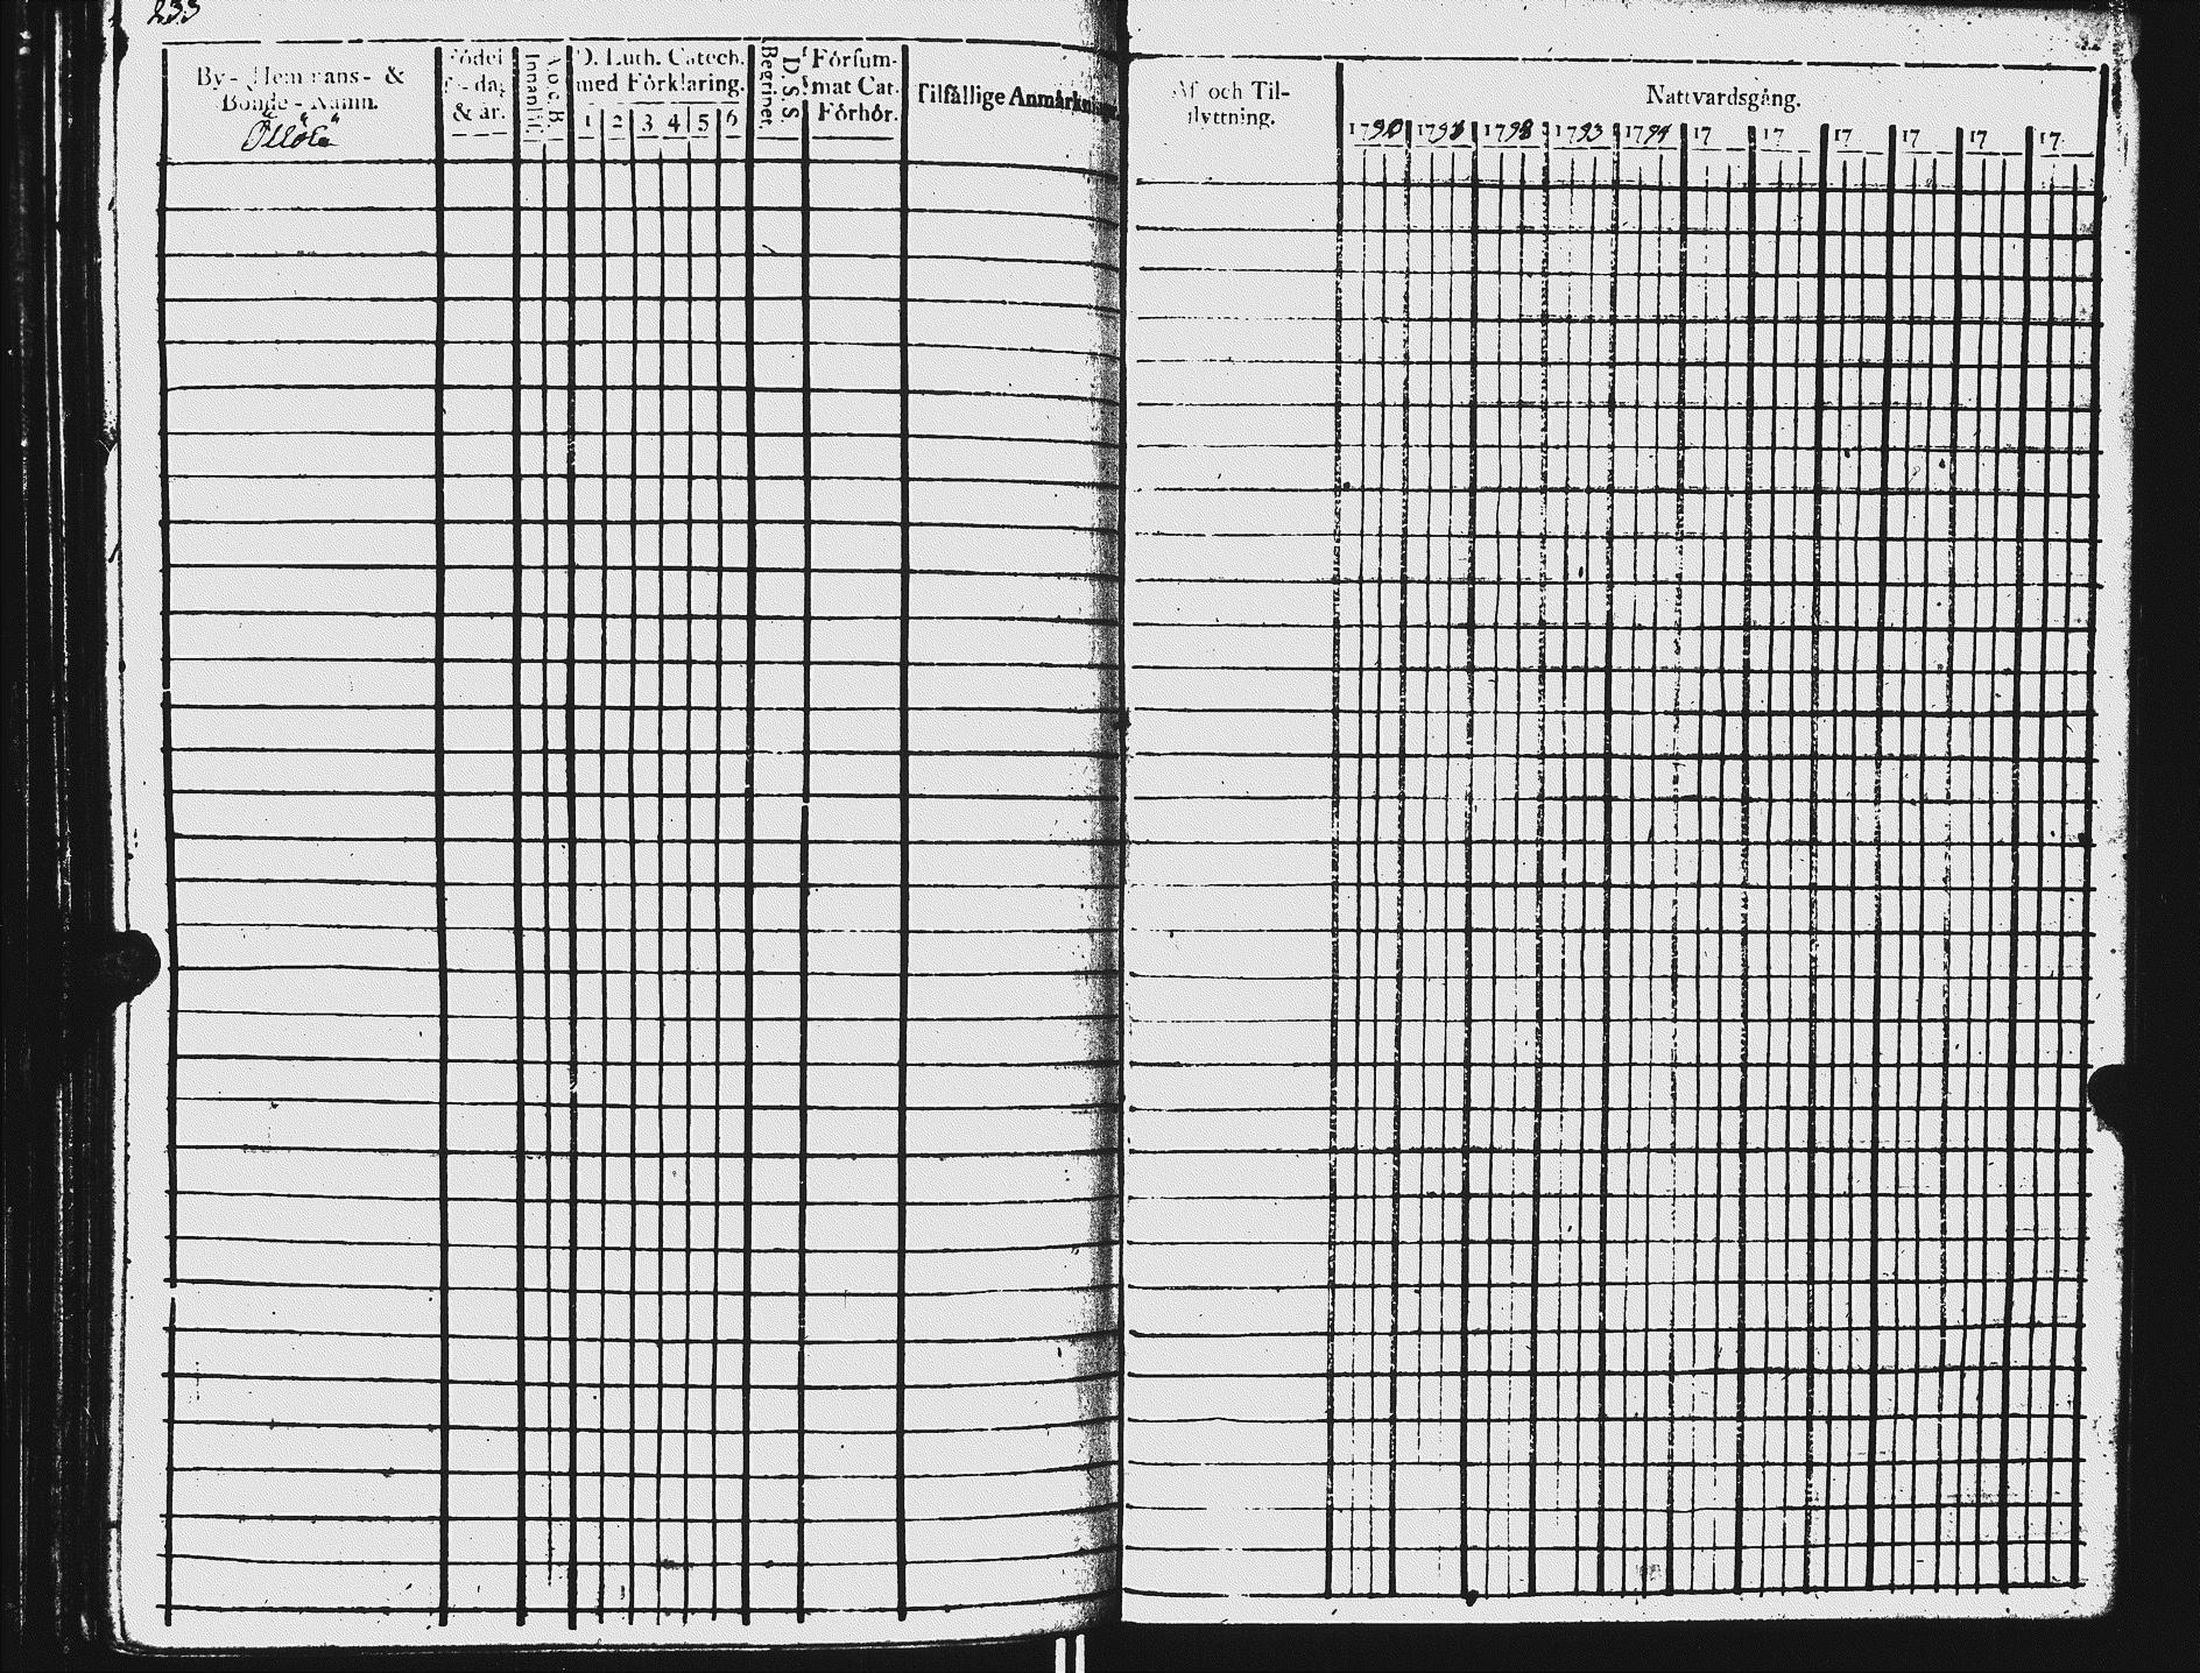 233
By- Hemmans- &
Bonde- Namn.
Födelse- dag
& år.
A.b.c.B.
Innanläs.
D. Luth. Catech.
med Förklaring.
1 2 3 4 5 6
D. S. S.
Begriper.
Försum-
mat Cat.
Förhör.
Tilfällige Anmärkningar.
Af och Til-
flyttning.
Nattvardsgång.
1790 1791 1792 1793 1794 17 17 17 17 17 17